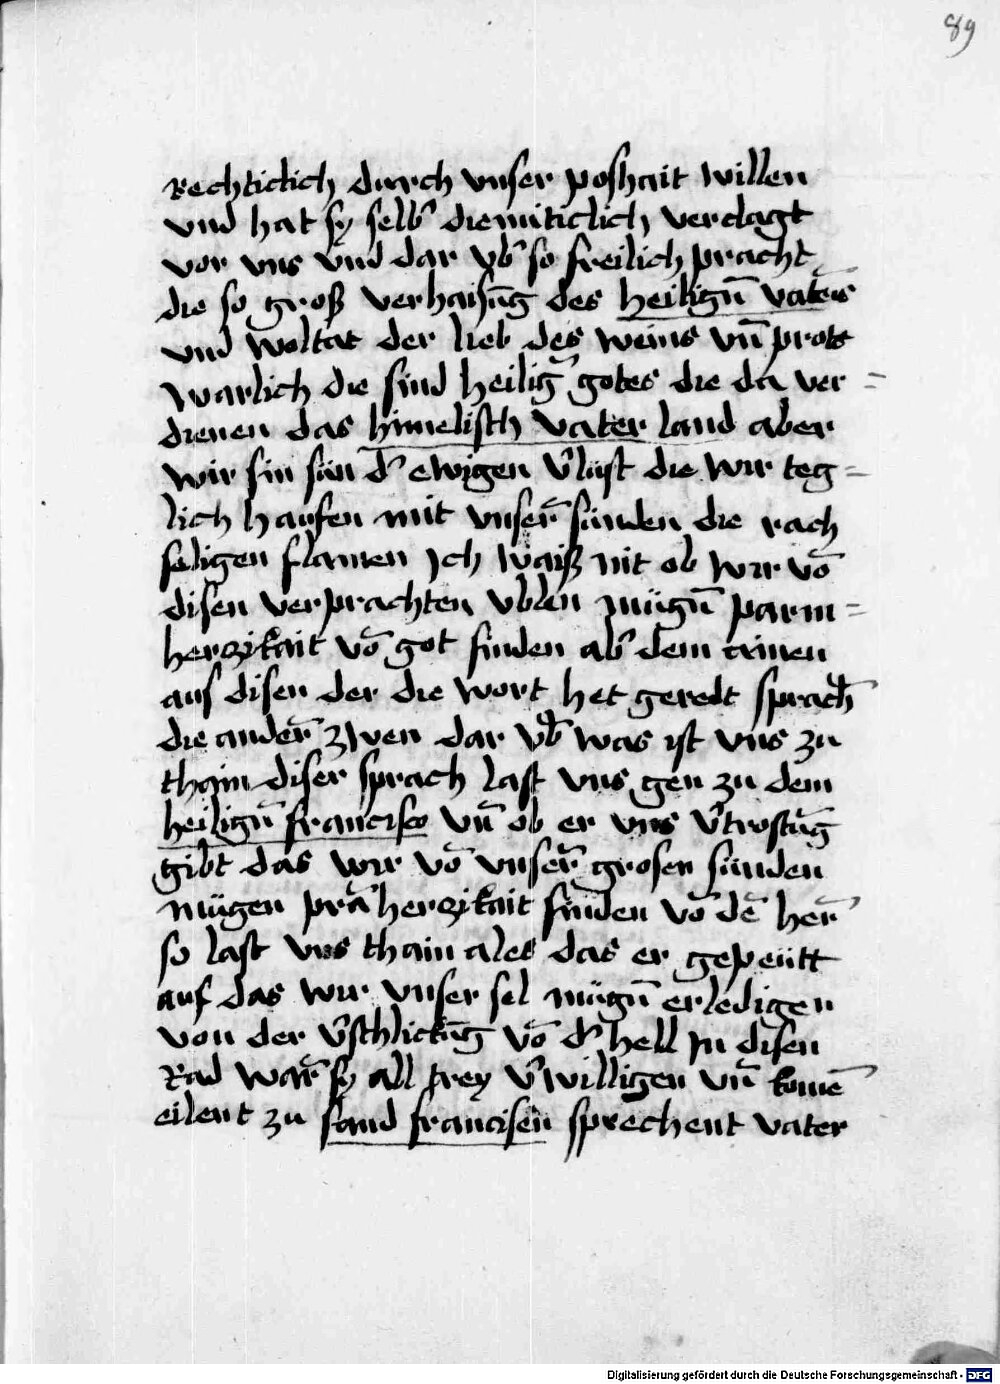 89
Rechticlich durch vnser poshait willen
vnd hat sy selb̾ diemiticlich verclagt
vor vns vnd dar vb̾ so freilich pracht
die so groß verhaisūg des heilign̄ vaters
vnd woltat der lieb des weins vn̄ prots
warlich die sind heilig̾ gotes die da ver=
dienen das himelisch vater land aber
wir sin sün d̾ ewigen v̾lust die wir teg=
lich haufen mit vnser̄ sünden die rach
seligen flamen Ich waiß nit ob wir vō
disen verprachten vblen mügn̄ parm=
herzikait vō got finden ab̾ dem ainen
aus disen der die wort het geredt sprach̾
die ander̄ zwen dar vb̾ was ist vns zu
thain diser sprach last vns gen zu dem
heilign̄ francisco vn̄ ob er vns v̾trostūg
gibt das wir vō vnser̄ grosen sünden
mügen prā herzikait finden vō dē her̄
so last vns thain ales das er gepeütt
auf das wir vnser sel mügn̄ erledigen
von der v̾schlickūg vō d̾ hell In disen
Rad war̄ sy all trey v̾willigen vn̄ komē
eilent zu sand francisen sprechent vater
Digitalisierung gefördert durch die Deutsche Forschungsgemeinschaft - DFG